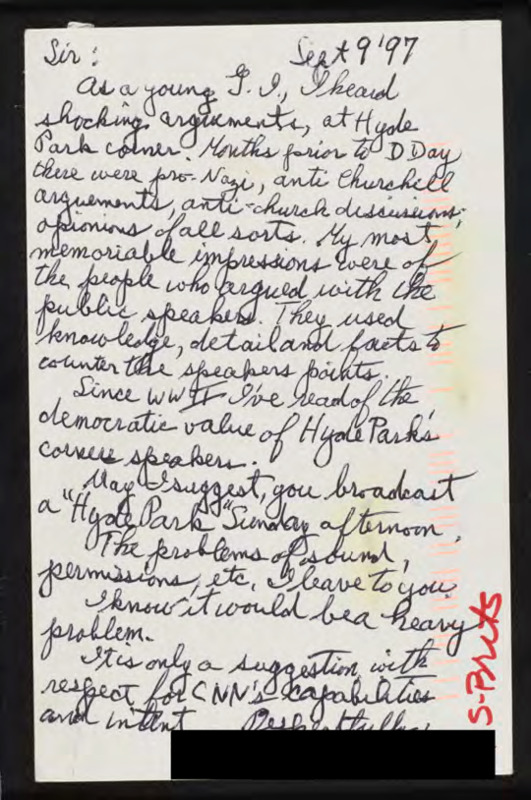 Sir: Sept 9 '97
As a young G.I., I heard
shocking arguements, at Hyde
Park corner. Months prior to D Day
there were pro-Nazi, anti Churchill
arguements, anti-church discussions,
opinions of all sorts. My most
memoriable impressions were of
the people who argued with the
public speakers. They used
knowledge, detail and facts to
counter the speakers points.
Since WW II I've read of the
democratic value of Hyde Park's
corner speakers.
May I suggest, you broadcast
a "Hyde Park" Sunday afternoon.
The problems of sound,
permissions, etc, I leave to you.
I know it would be a heavy
problem.
It is only a suggestion with
respect for CNN's capabilities
and intent Respectfully,
S-Brits